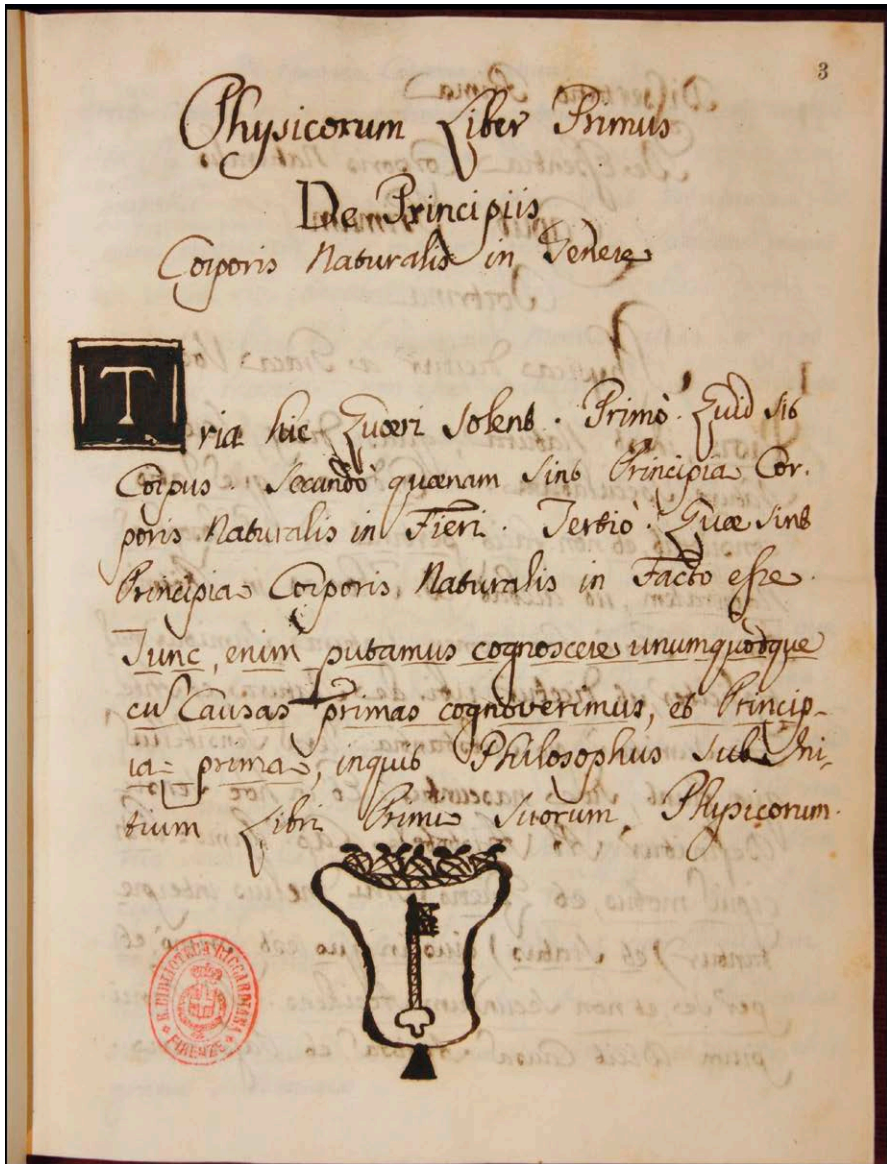 3
Physicorum Liber Primus
De Principiis
Corporis Naturalis in Genere
Tria hic Quæri solent. Primò. Quid sit
Corpus. Secundò quænam sint Principia Cor-
poris Naturalis in Fieri. Tertiò. Quæ sint
Principia Corporis Naturalis in Facto esse.
Tunc, enim putamus cognoscere unumquodque
cu Causas primas cognoverimus, et Princip-
ia prima, inquit Philosophus sub Ini-
tium Libri Primi suorum Physicorum.
R. BIBLIOTECA RICCARDIANA
FIRENZE